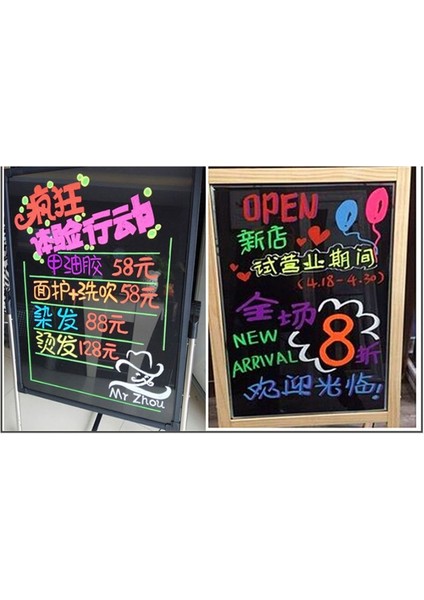 疯狂
体验行动
甲油胶 58元
面护+洗吹58元
染发 88元
烫发128元
Mr Zhou
OPEN
新店
试营业期间
(4.18-4.30)
全场
8折
NEW
ARRIVAL
欢迎光临!